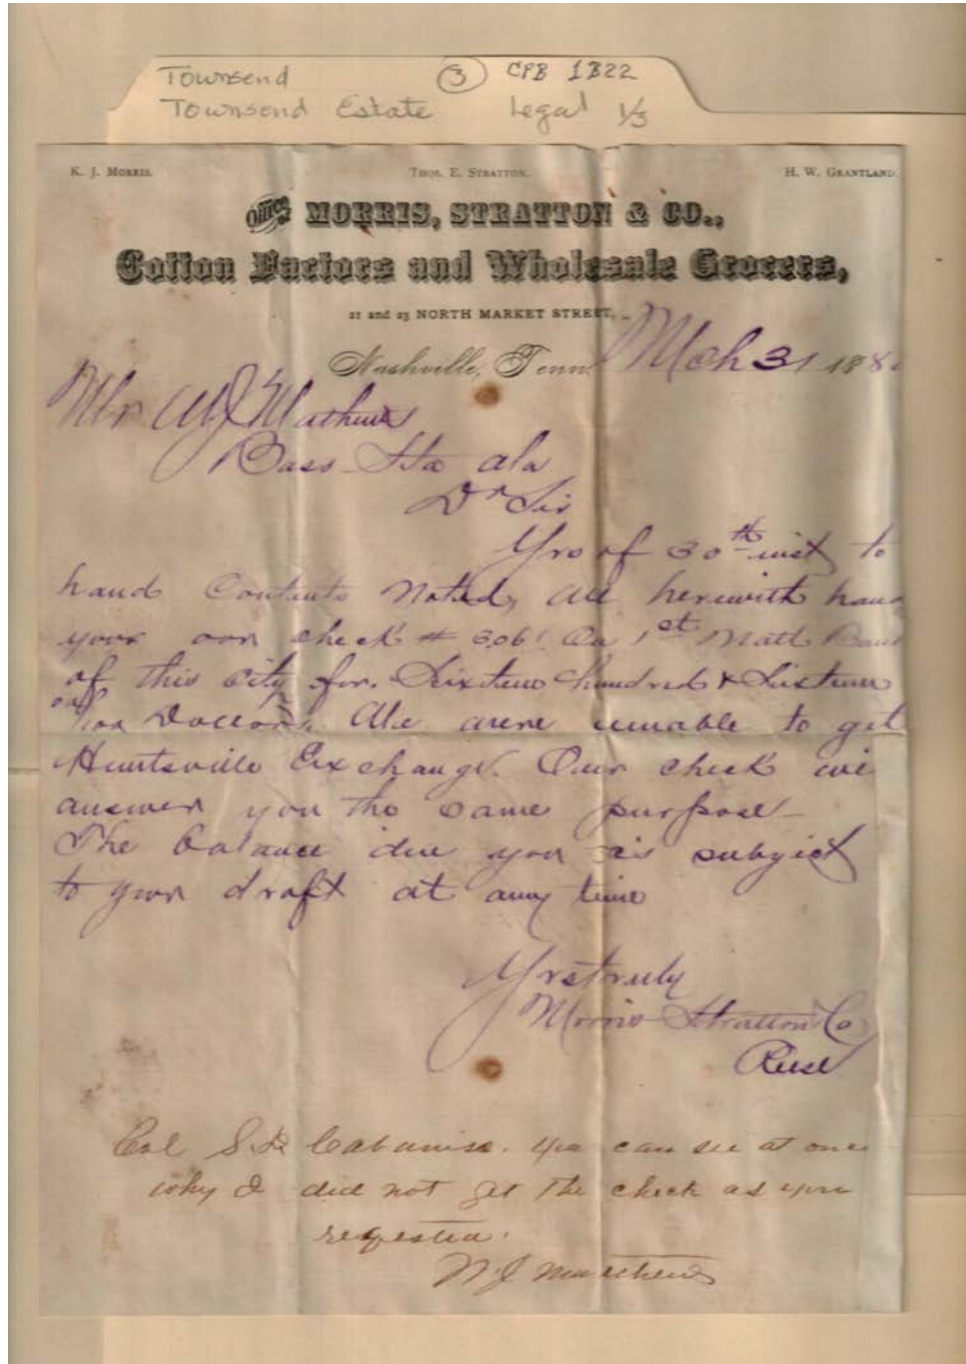 Townsend ③ CPB 1B22
Townsend Estate Legal 1/3
K. J. Morris. Thos. E. Stratton. H. W. Grantland.
Office MORRIS, STRATTON & CO.,
Cotton Factors and Wholesale Grocers,
21 and 23 NORTH MARKET STREET,
Nashville, Tenn. Mch 31 188
Mr W J Mathews
Bass Sta ala
Dr Sir
Yrs of 30th inst to
hand Contents Noted, We herewith hand
your our check # On 1st Natl Bank
of this City for. Sixteen hundred & Sixteen
Dollars. We were unable to get
Huntsville Exchange. Our check will
answer you the same purpose—
The balance due you is subject
to your draft at any time
Yrs truly
Morris Stratton Co
Col S. D. Cabaniss. you can see at once
why I did not get the check as you
requested.
W. J. Matthews